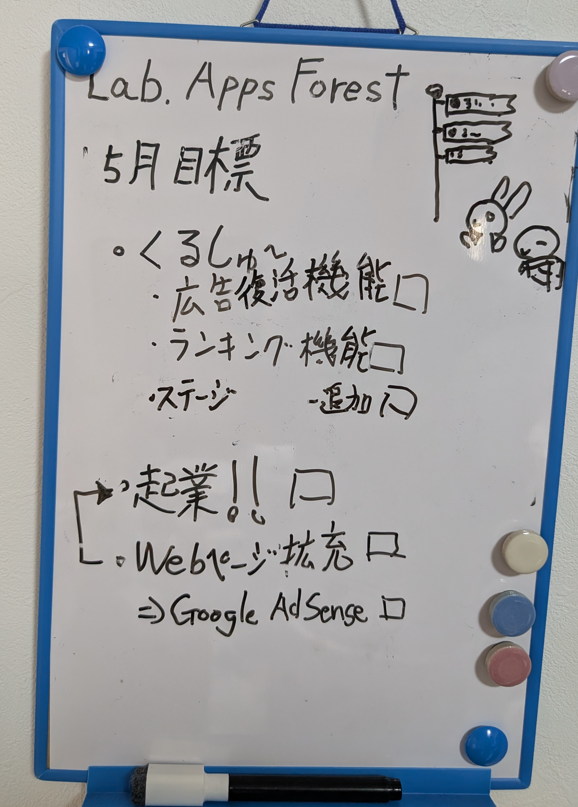 Lab. Apps Forest
5月目標
・くるしゅ〜
・広告復活機能□
・ランキング機能□
・ステージ 追加□
・起業!! □
・Webページ拡充 □
⇒Google AdSense □